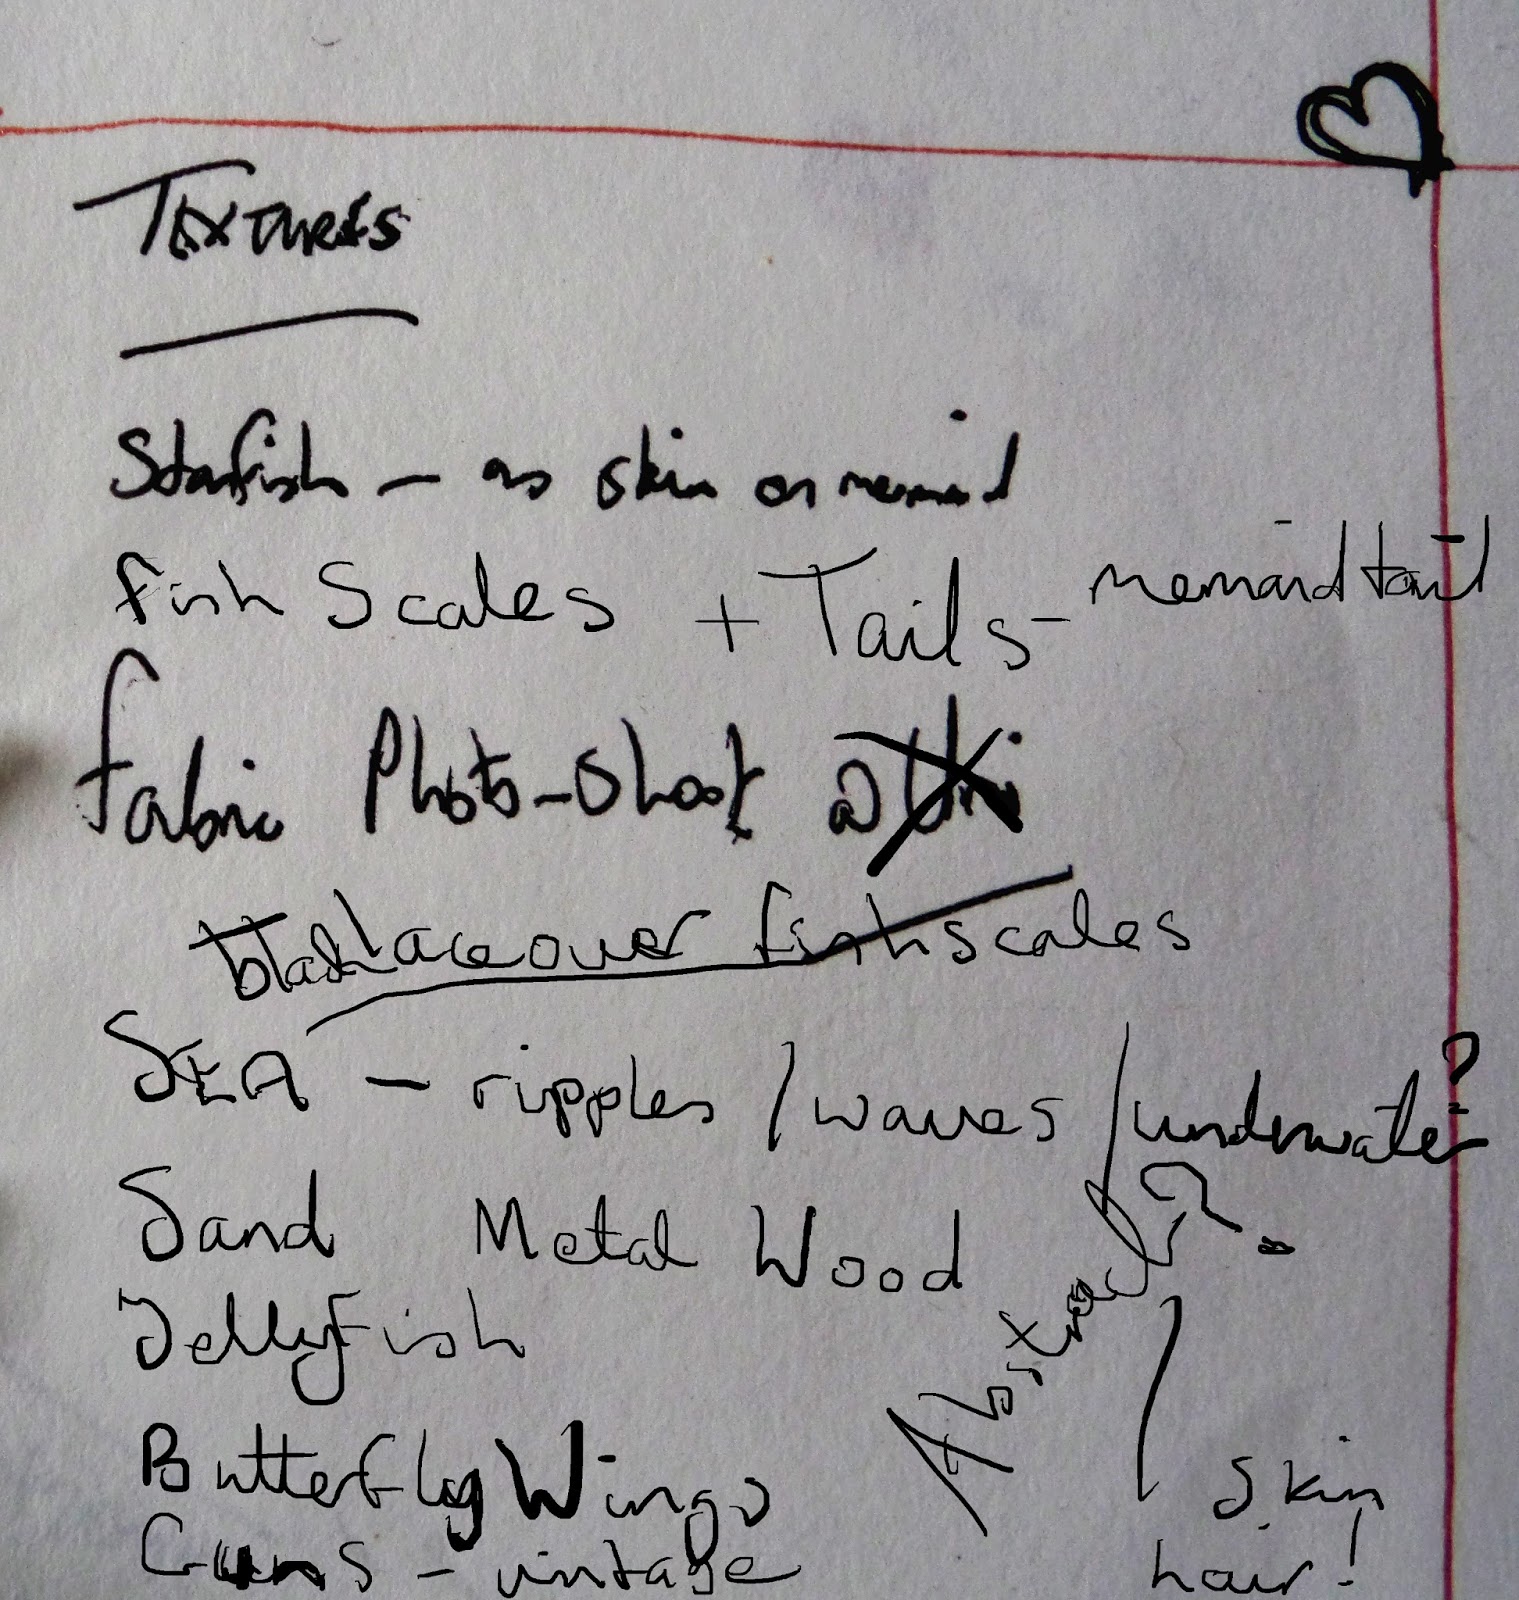 TEXTURES
Starfish - as skin on mermaid
Fish Scales + Tails - mermaid tail
Fabric Photo-Shoot @ Uni
black lace over fish scales
SEA - ripples / waves / underwater?
Sand Metal Wood
Jellyfish
Abstract?
Butterfly Wings
skin
Guns - vintage
hair!